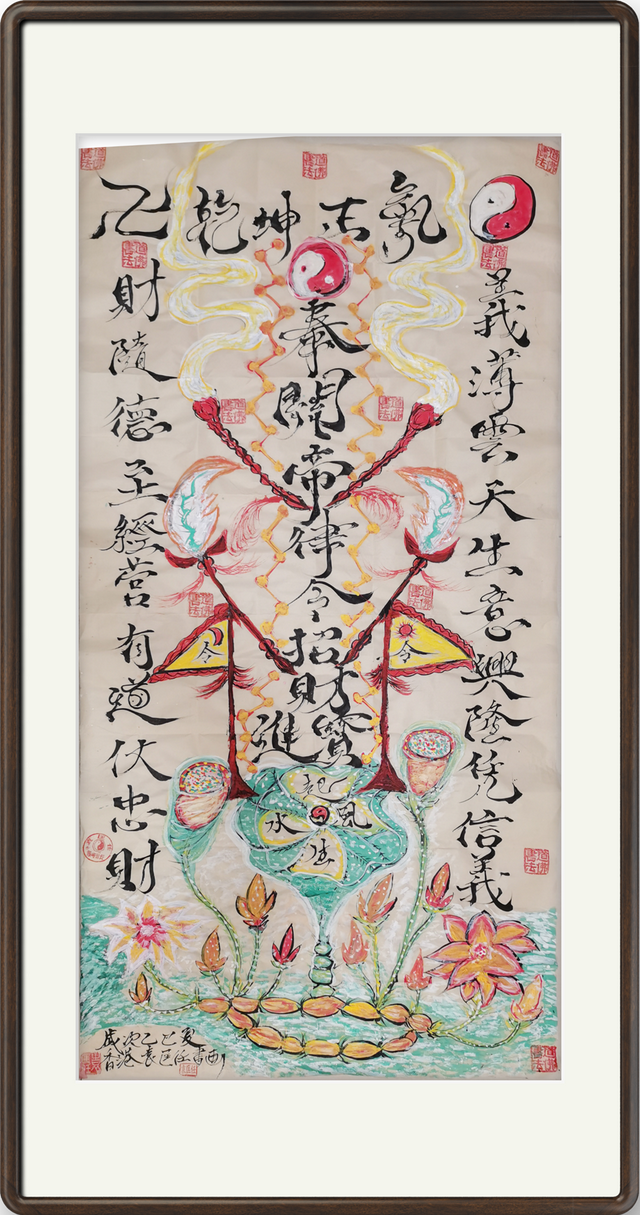 卍乾坤正氣
義薄雲天生意興隆凭信義
財隨德至經營有道仗忠財
奉關帝律令招財進寶
令
令
風生水起
歲次乙巳夏
香港